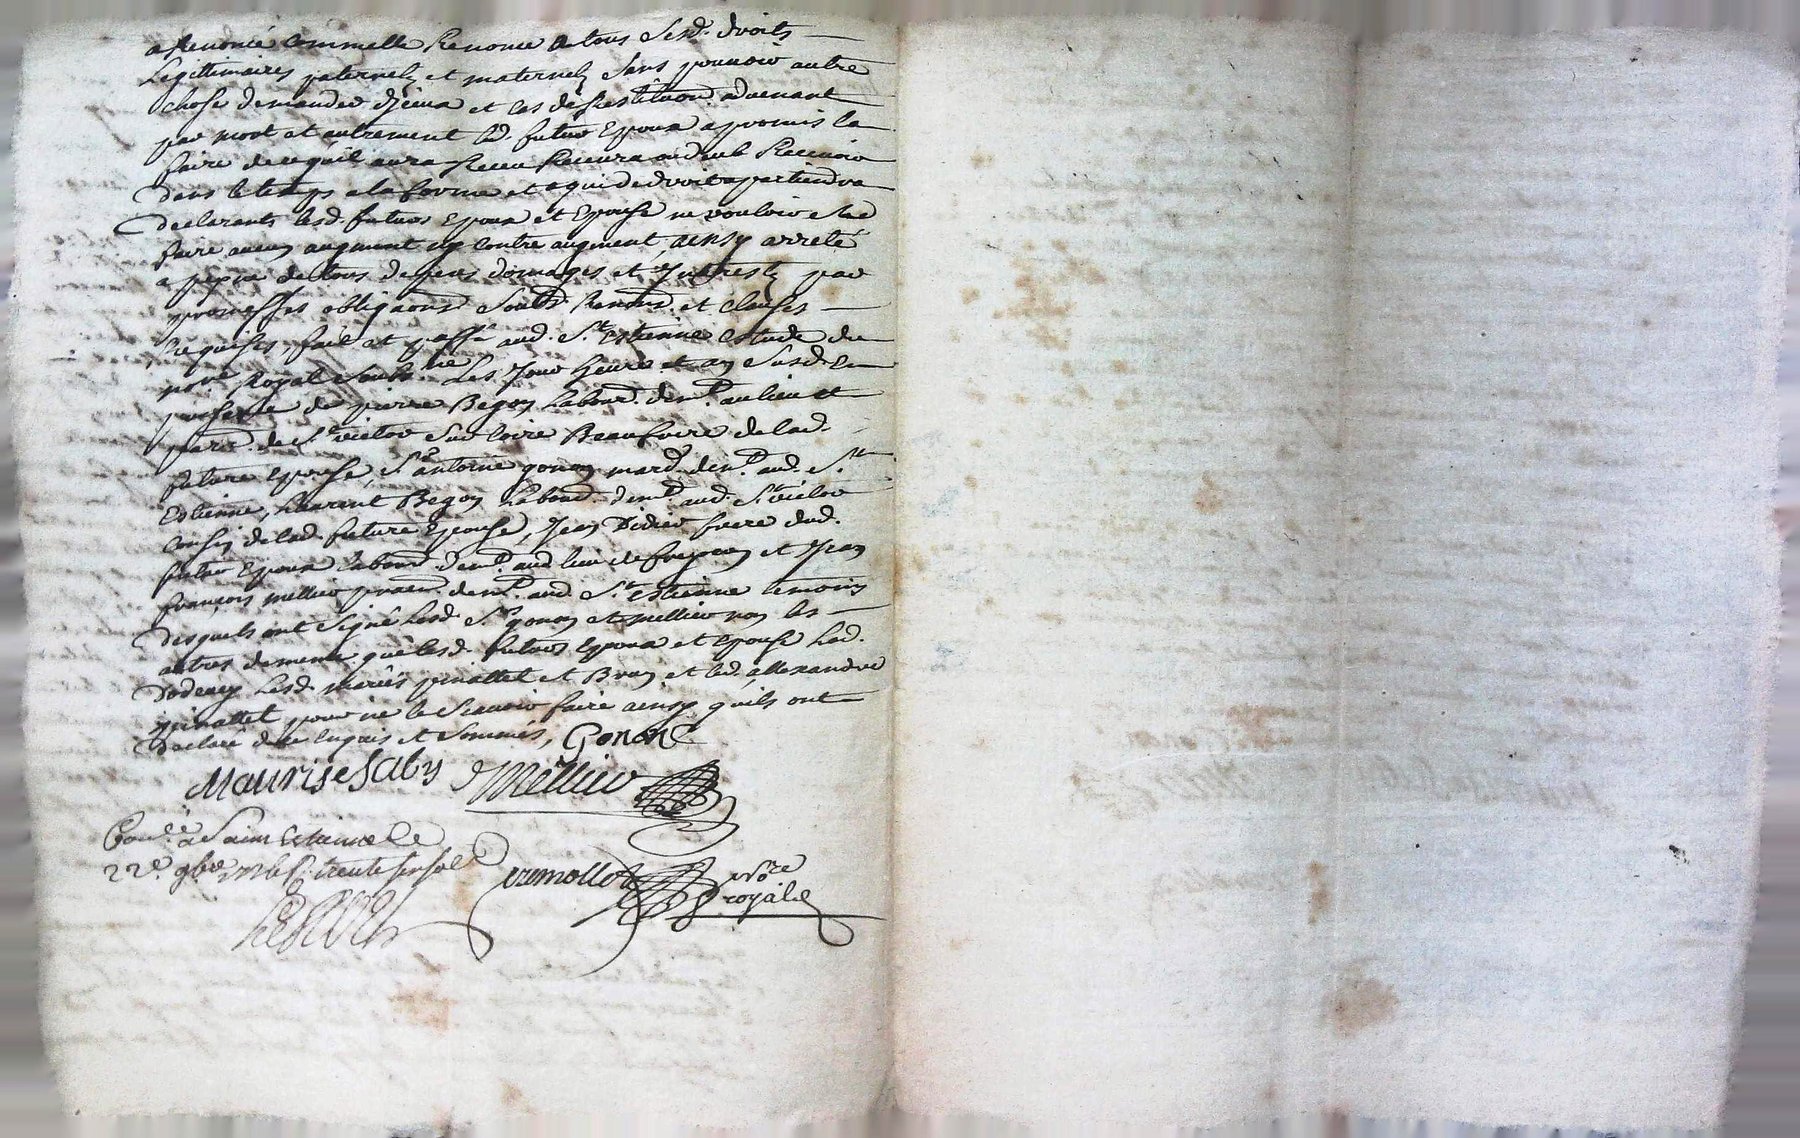 a Renoncé commelle Renonce a tous Sesd. droits
Legittimaires paternels et maternels sans pouvoir autre
chose demander et cas de Restitution advenant
par mort et autrement led. futur Epoux a promis la
faire de ce quil aura Receu
dans le temps a la forme et a qui de droit apartiendra
declarants lesd. futurs Epoux et Epouse ne vouloir se
faire aucun augment ny contre augment, ainsy arreté
a peine de tous depens domages et Interests par
promesses obligaons Soub. Renons. et clauses
Requises, fait et passé aud. St. estienne Estude du
nore Royal Soubs.né Les Jour heure et an Susd. En
presence de pierre Begon Labour. dem.t au lieu et
parr. de St. victor Sur loire Beaufrere de lad.
future Epouse, Sr. antoine gonon march. dem.t aud. St.
Estienne, Laurent Begon Labour. dem.t aud. St. victor
cousin de lad. future Epouse, Jean Didier frere dud.
futur Epoux Labour. dem.t aud. lieu de et Jean
françois mellier pratn. dem.t aud. St. estienne temoins
desquels ont Signé Lesd. Srs. gonon et mellier non les
autres de meme que lesd. futurs Epoux et Epouse Lad.
Lesd. mariés pinattel et Brun et led. allexandre
pinattel pour ne le Scavoir faire ainsy quils ont
Declaré de ce Enquis et Sommés, Gonon
Maurise Saby Mellier
Con.lé a Saint Estienne Le
22e. 9bre Rs. trente six sols
nore
royal